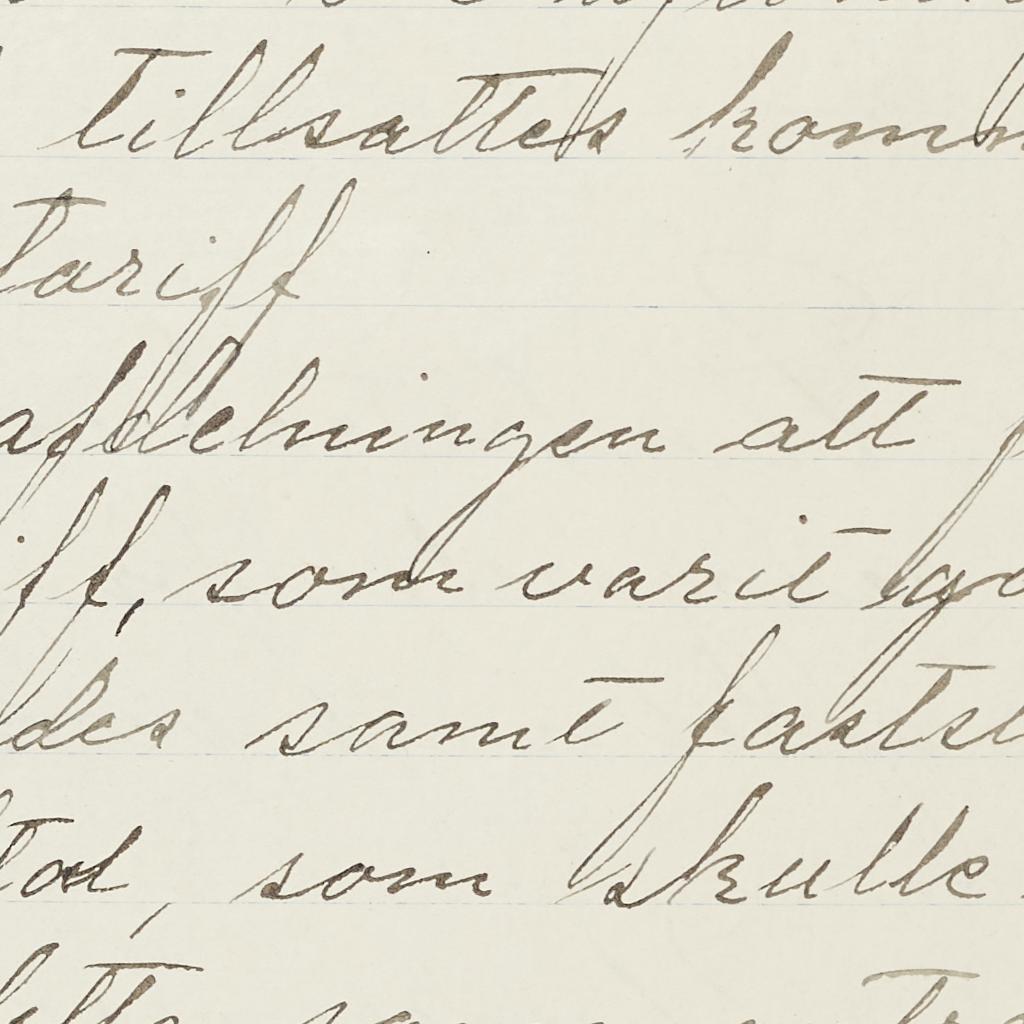 tillsattes komm
tariff
afdelningen att f
iff, som varit go
des samt fastst
tal, som skulle